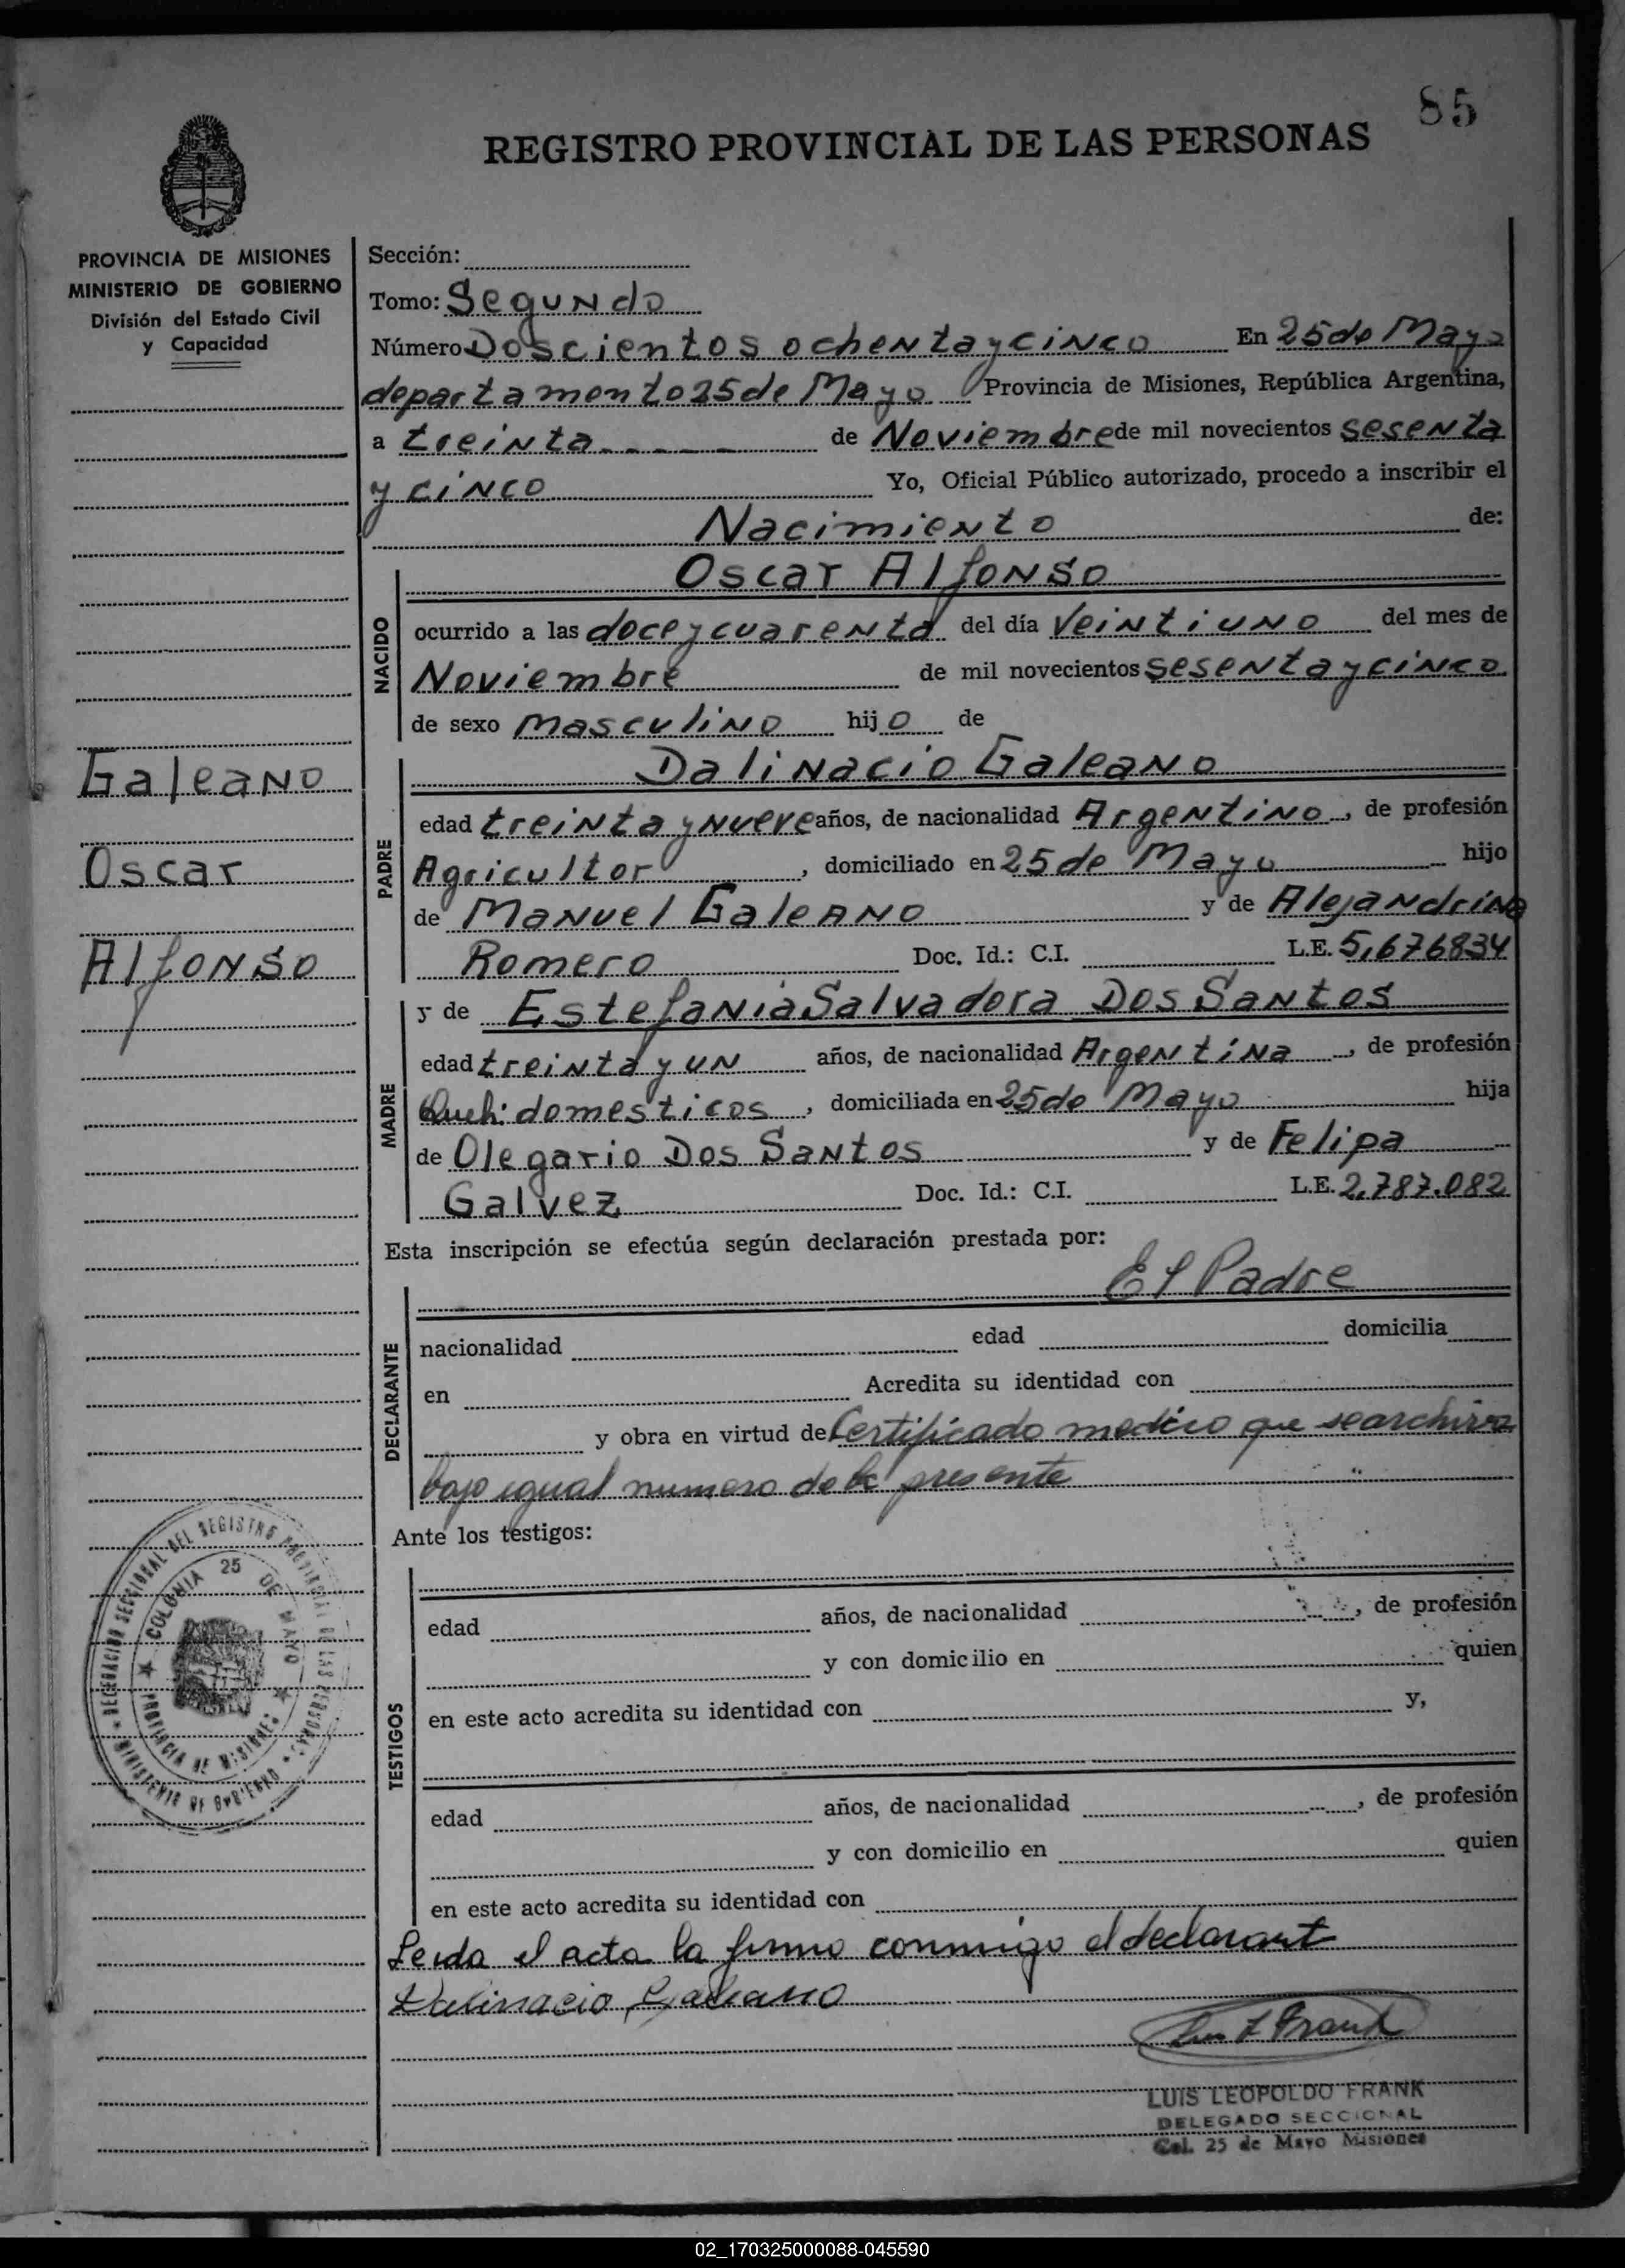 85
REGISTRO PROVINCIAL DE LAS PERSONAS
PROVINCIA DE MISIONES
MINISTERIO DE GOBIERNO
División del Estado Civil
y Capacidad
Galeano
Oscar
Alfonso
Sección:
Tomo: Segundo
Número Doscientos ochenta y cinco En 25 de Mayo
departamento 25 de Mayo Provincia de Misiones, República Argentina,
a treinta de Noviembre de mil novecientos sesenta
y cinco Yo, Oficial Público autorizado, procedo a inscribir el
Nacimiento de:
Oscar Alfonso
NACIDO
ocurrido a las doce y cuarenta del día Veintiuno del mes de
Noviembre de mil novecientos sesenta y cinco
de sexo masculino hijo de
Dalinacio Galeano
PADRE
edad treinta y nueve años, de nacionalidad Argentino, de profesión
Agricultor, domiciliado en 25 de Mayo hijo
de Manuel Galeano y de Alejandrina
Romero Doc. Id.: C.I. L.E. 5,676834
MADRE
y de Estefania Salvadora Dos Santos
edad treinta y un años, de nacionalidad Argentina, de profesión
Queh. domesticos, domiciliada en 25 de Mayo hija
de Olegario Dos Santos y de Felipa
Galvez Doc. Id.: C.I. L.E. 2.787.082
Esta inscripción se efectúa según declaración prestada por:
El Padre
DECLARANTE
nacionalidad edad domicilia
en Acredita su identidad con
y obra en virtud de Certificado medico que se archiva
bajo igual numero de la presente
Ante los testigos:
TESTIGOS
edad años, de nacionalidad , de profesión
y con domicilio en quien
en este acto acredita su identidad con y,
edad años, de nacionalidad , de profesión
y con domicilio en quien
en este acto acredita su identidad con
Leida el acta la firma conmigo el declarant
Dalinacio Galeano
DELEGACION SECCIONAL DEL REGISTRO PROVINCIAL DE LAS PERSONAS
MINISTERIO DE GOBIERNO
COLONIA 25 DE MAYO
PROVINCIA DE MISIONES
LUIS LEOPOLDO FRANK
DELEGADO SECCIONAL
Col. 25 de Mayo Misiones
02_170325000088-045590